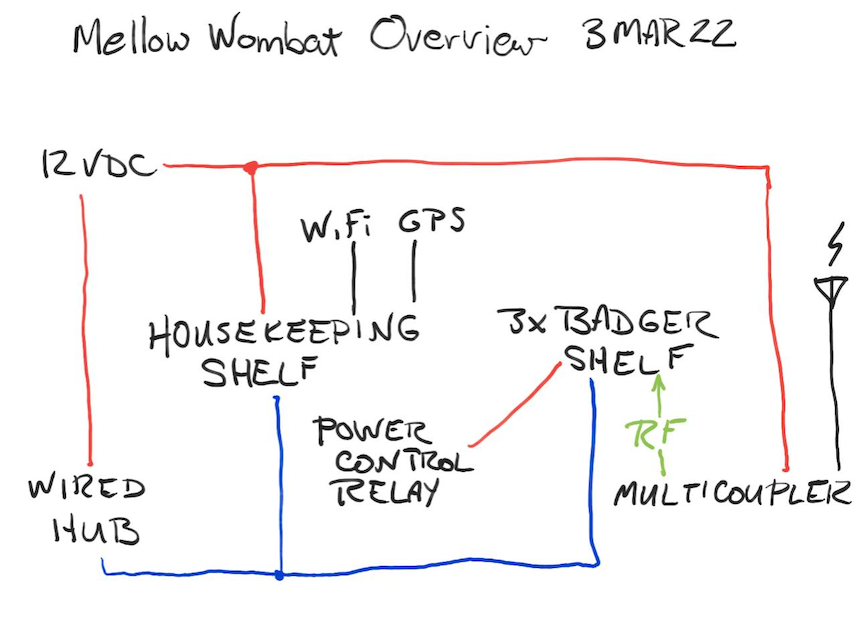 Mellow Wombat Overview 3 MAR 22
12 VDC
WiFi GPS
HOUSEKEEPING
SHELF
3x BADGER
SHELF
POWER
CONTROL
RELAY
RF
WIRED
HUB
MULTICOUPLER